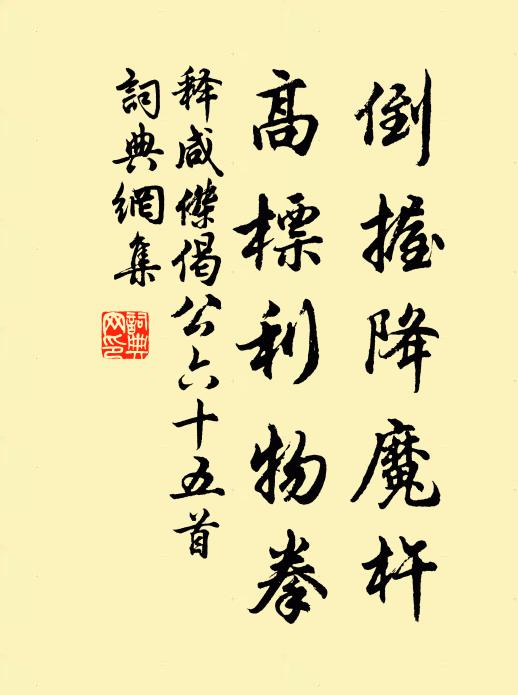 倒握降魔杵
高標利物拳
释咸傑偈公六十五首
詞典網集
詞典网印